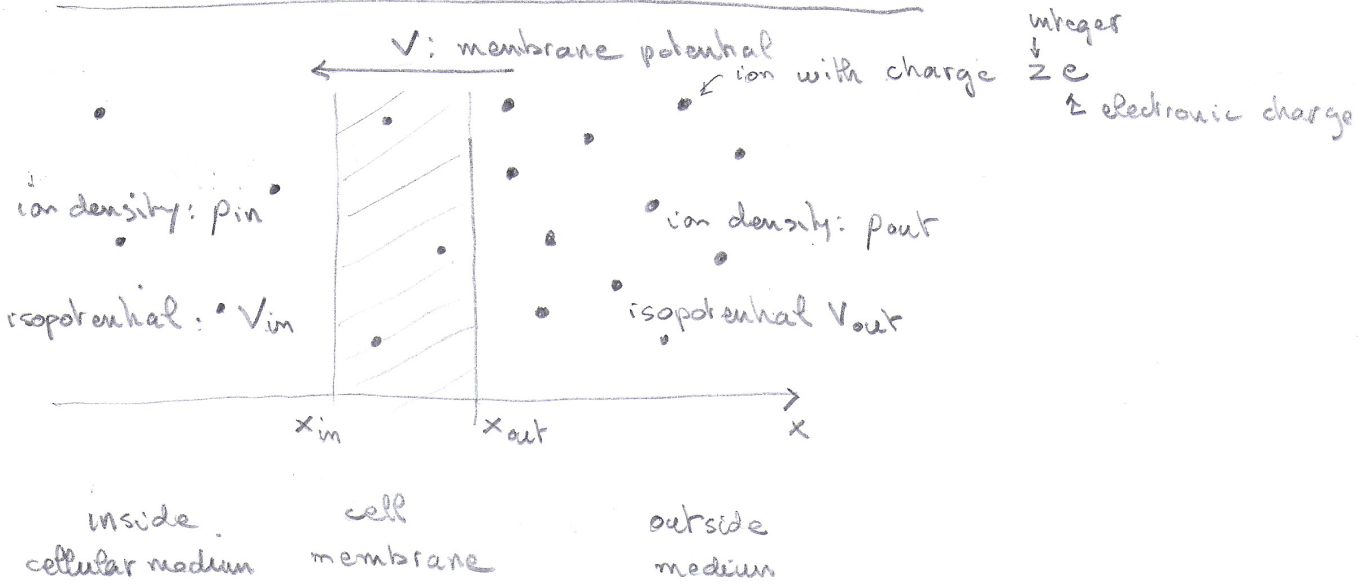 integer
V: membrane potential
ion with charge z e
electronic charge
ion density: ρin
ion density: ρout
isopotential: Vin
isopotential Vout
xin
xout
x
inside
cellular medium
cell
membrane
outside
medium